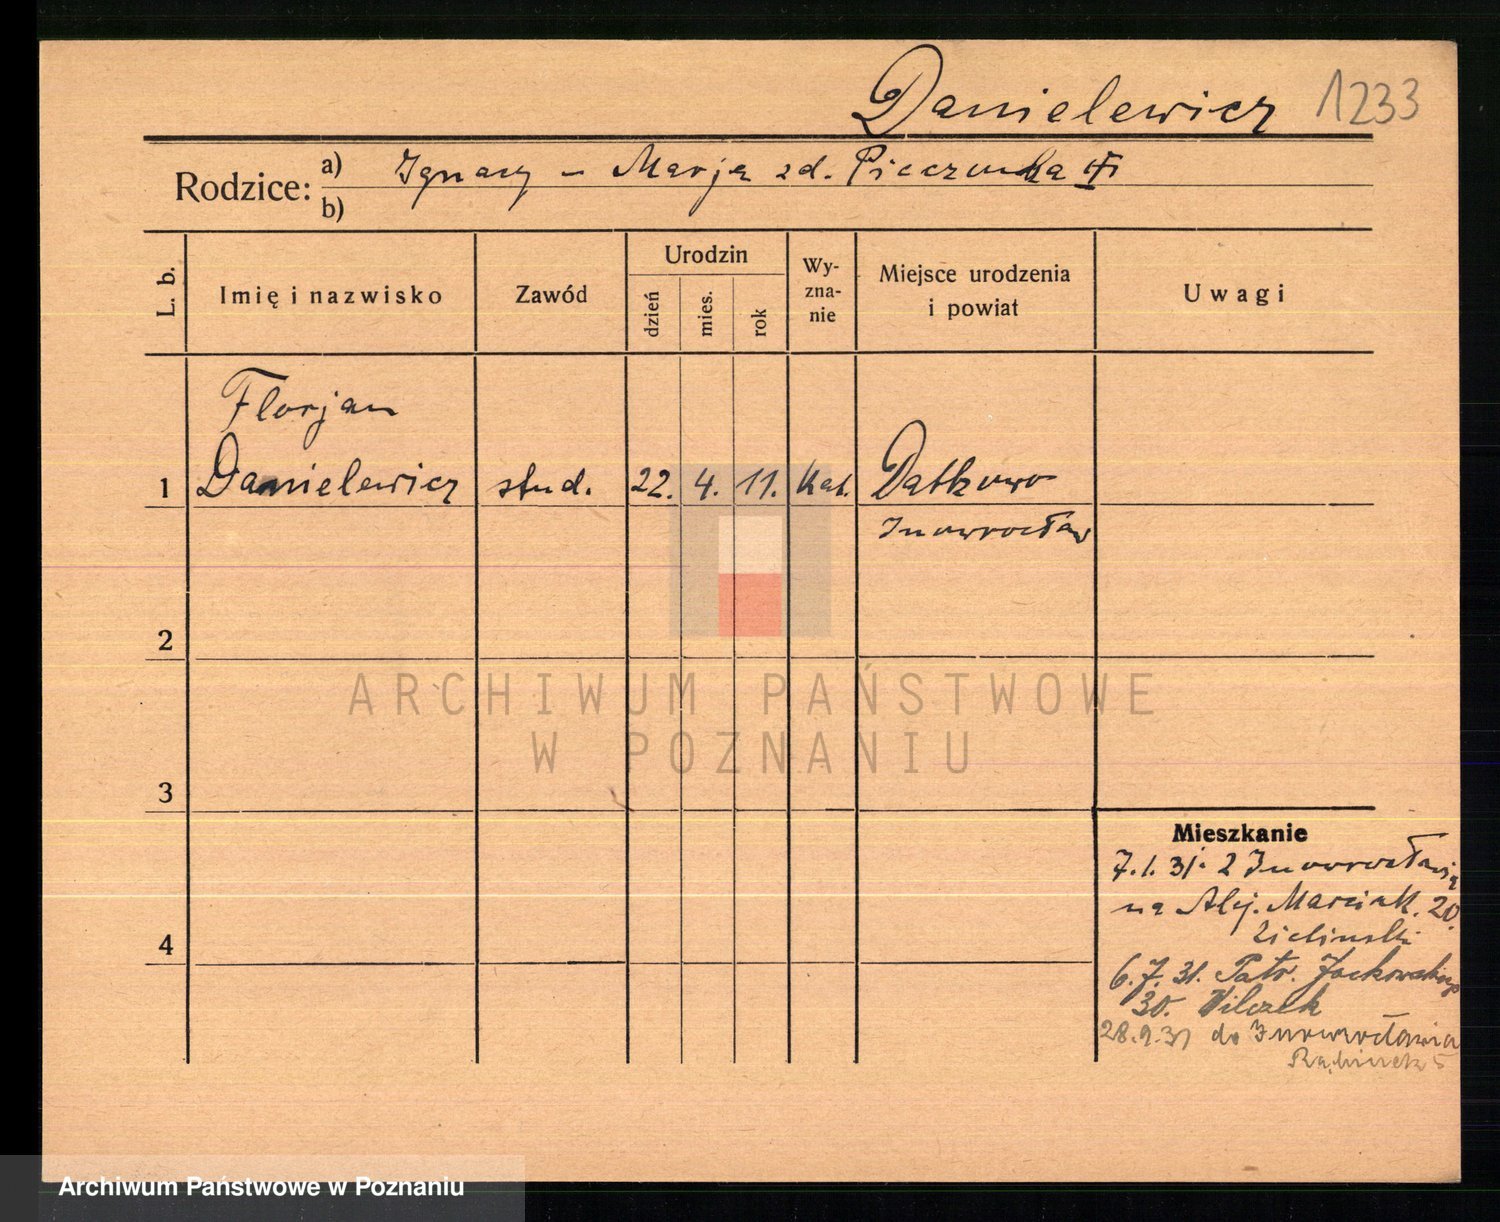 Danielewicz 1233
Rodzice: a) Ignacy - Marja zd.
b)
L. b.
Imię i nazwisko
Zawód
Urodzin
dzień
mies.
rok
Wy-
zna-
nie
Miejsce urodzenia
i powiat
Uwagi
Florjan
1 Danielewicz stud. 22. 4. 11. kat. Datkowo
Inowrocław
2
ARCHIWUM PAŃSTWOWE
W POZNANIU
3
Mieszkanie
7.1.31. z Inowrocławia
na Alej. Marcink. 20.
Zieliński
6.7.31. Patr. Jackowskiego
30. Wilczek
28.9.31 do Inowrocławia
5
4
Archiwum Państwowe w Poznaniu